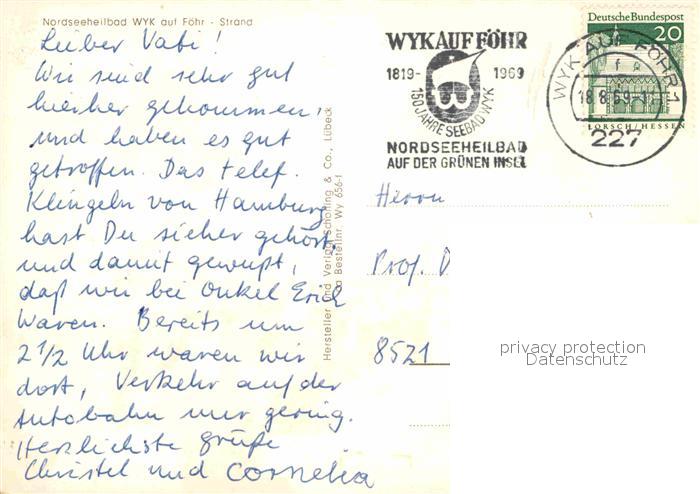 Nordseeheilbad WYK auf Föhr - Strand
Lieber Vati!
Wir sind sehr gut
hierher gekommen,
und haben es gut
getroffen. Das telef.
Klingeln von Hamburg
hast Du sicher gehört,
und damit gewußt,
daß wir bei Onkel Erich
waren. Bereits um
2 1/2 Uhr waren wir
dort, Verkehr auf der
Autobahn nur gering.
Herzlichste Grüße
Christel und Cornelia
Hersteller und Verlag Schöning & Co., Lübeck
Bestellnr. Wy 656-f
WYK AUF FÖHR
1819- 1969
150 JAHRE SEEBAD WYK
NORDSEEHEILBAD
AUF DER GRÜNEN INSEL
Deutsche Bundespost
20
LORSCH/HESSEN
WYK AUF FÖHR 1
18.8.69-1
227
Herrn
Prof. D
8521
privacy protection
Datenschutz